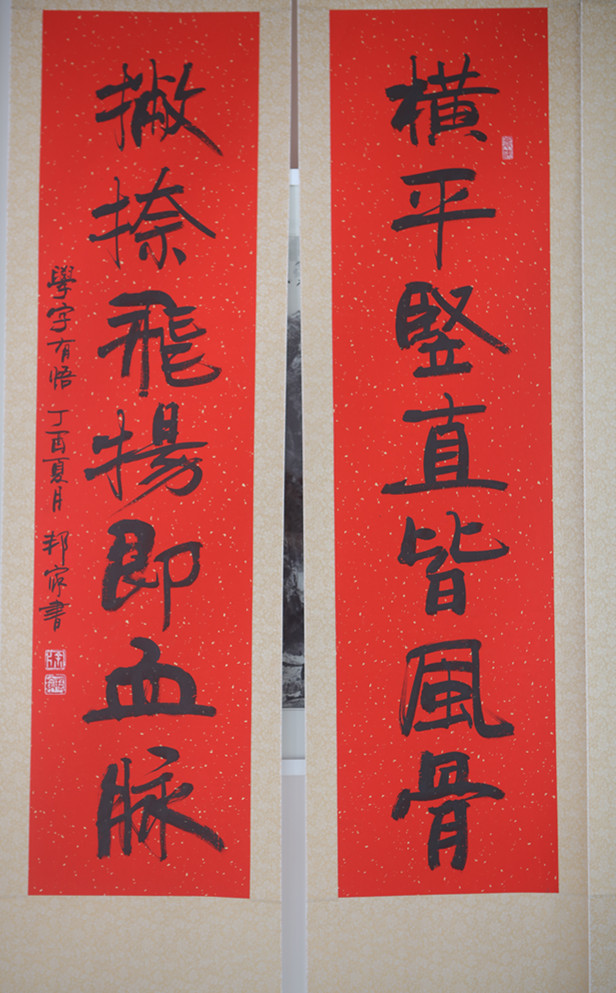 橫平竪直皆風骨
撇捺飛揚即血脉
學字有悟 丁酉夏月 邦家書